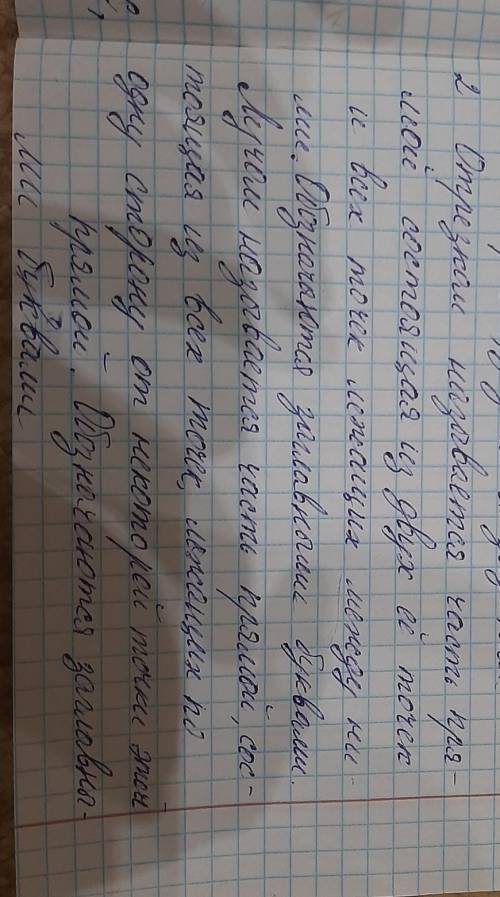 2 Отрезком называется часть пря-
мой состоящая из двух её точек
и всех точек лежащих между ни-
ми. Обозначаются заглавными буквами.
Лучом называется часть прямой, сос-
тоящая из всех точек, лежащих по
одну сторону от некоторой точки этой
прямой. Обозначаются заглавны-
ми буквами